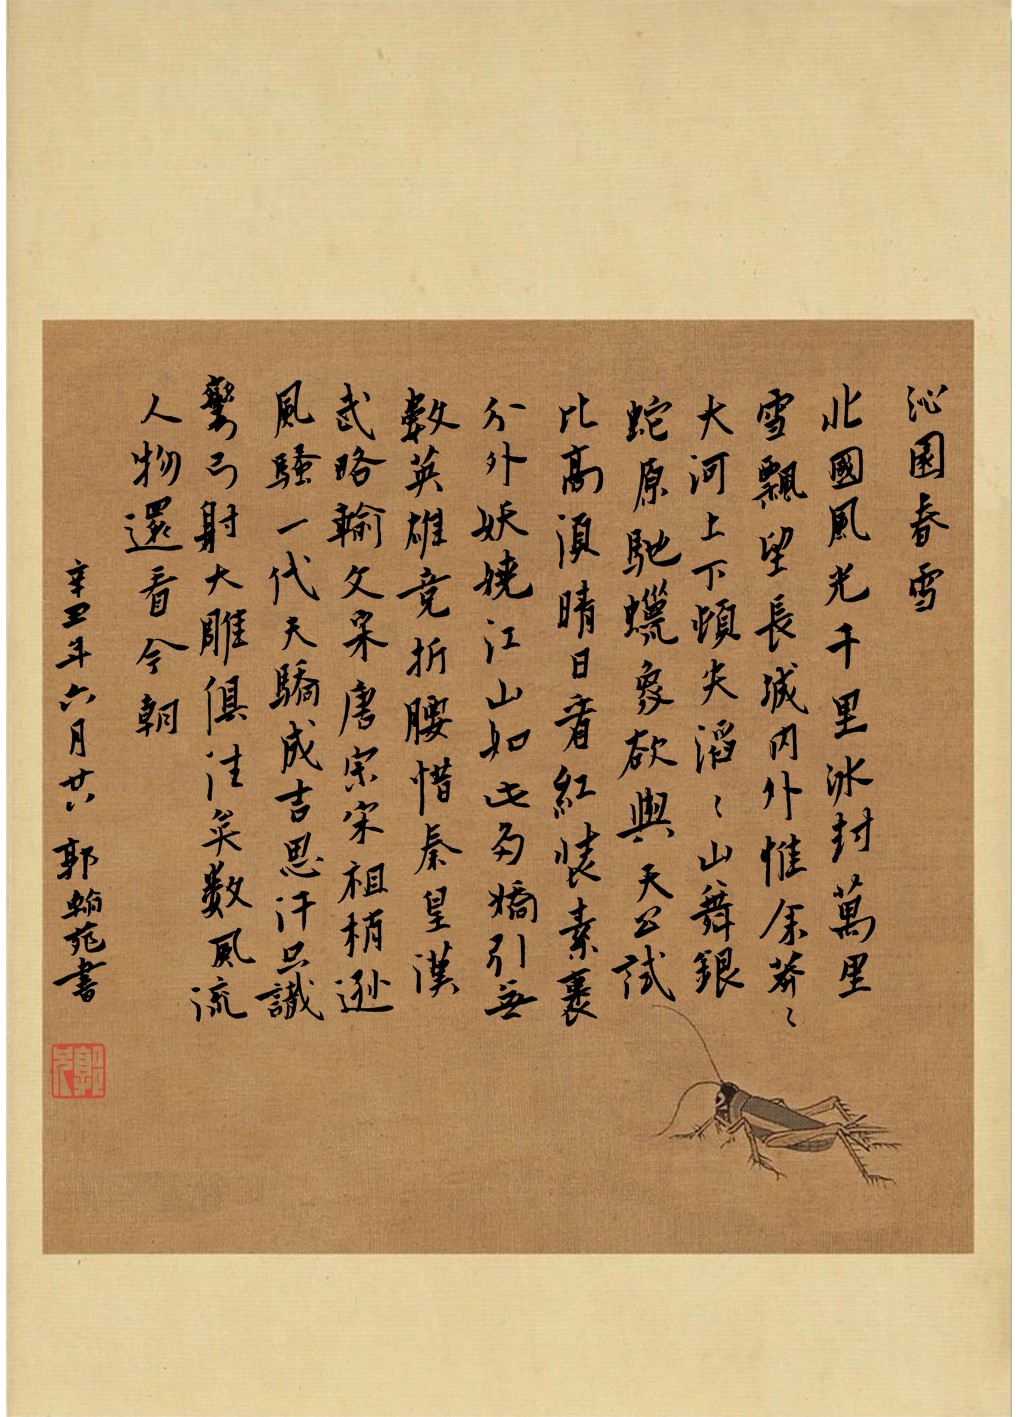 沁園春雪
北國風光千里冰封萬里
雪飄望長城内外惟余莽〻
大河上下頓失滔〻山舞銀
蛇原馳蠟象欲與天公試
比高須晴日看紅裝素裹
分外妖嬈江山如此多嬌引無
數英雄竞折腰惜秦皇漢
武略輸文采唐宗宋祖稍遜
風騷一代天驕成吉思汗只識
彎弓射大雕俱往矣數風流
人物還看今朝
辛丑年六月廿八 郭翰苑書